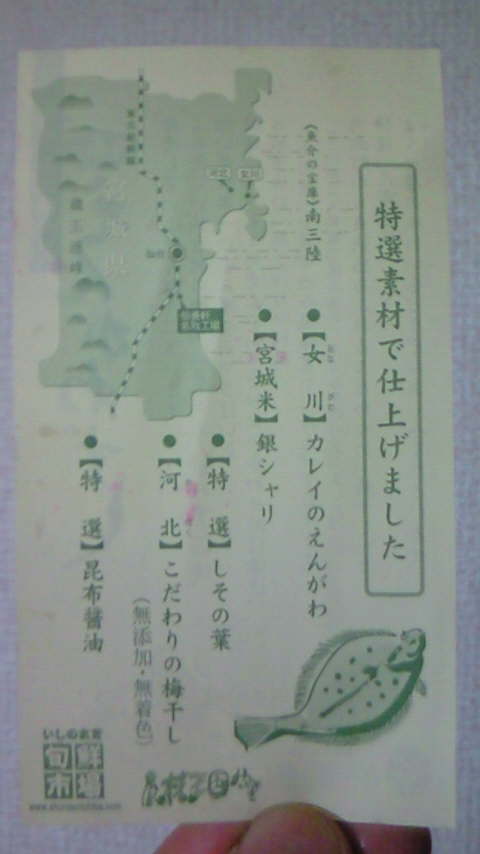 特選素材で仕上げました
（魚介の宝庫）南三陸
●【女川】カレイのえんがわ
●【宮城米】銀シャリ
●【特選】しその葉
●【河北】こだわりの梅干し
（無添加・無着色）
●【特選】昆布醤油
宮城県
河北
女川
仙台
いしのまき
旬鮮
市場